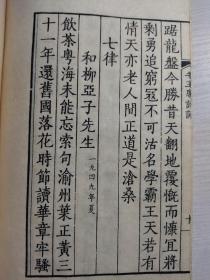 踞龍盤今勝昔天翻地覆慨而慷宜將
剩勇追窮寇不可沽名學霸王天若有
情天亦老人間正道是滄桑
七律
和柳亞子先生 一九四九年夏
飲茶粵海未能忘索句渝州葉正黃三
十一年還舊國落花時節讀華章牢騷